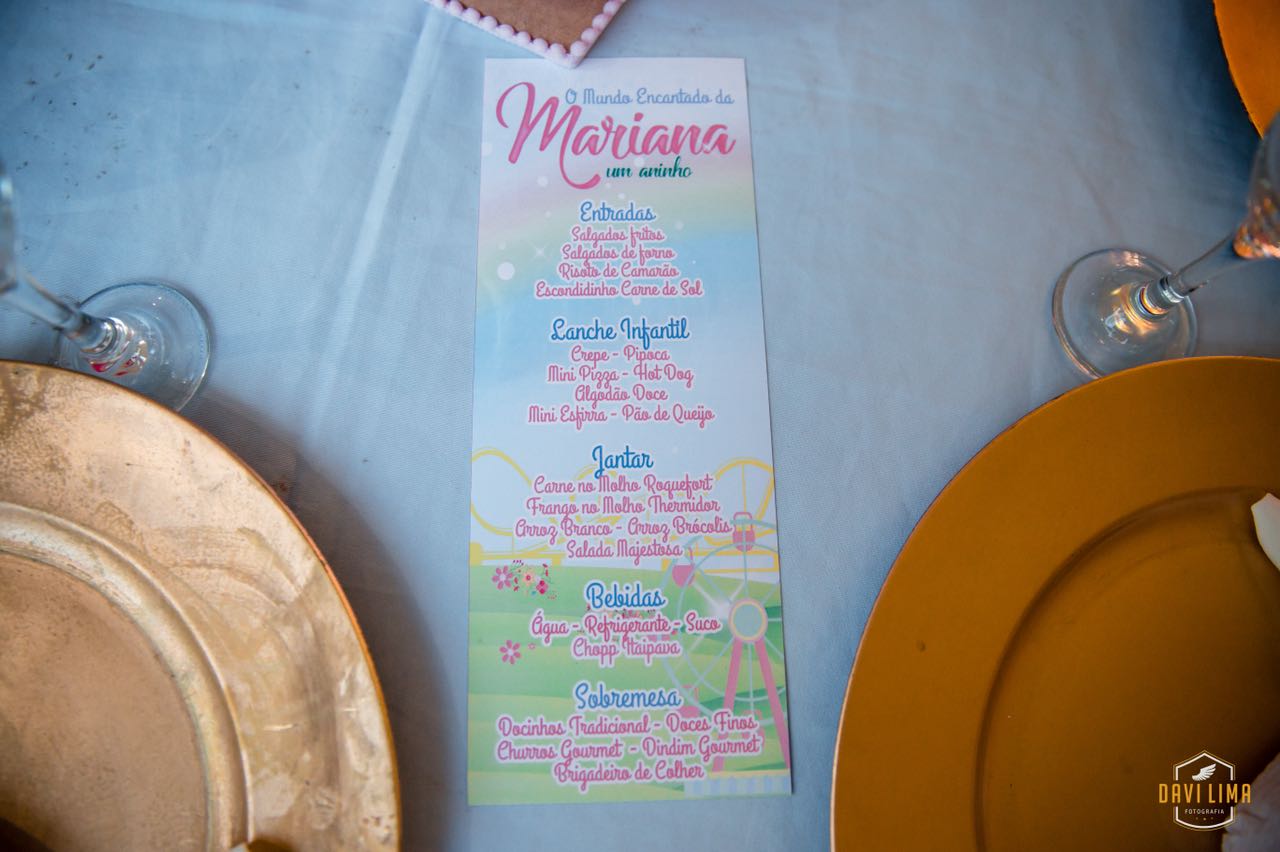 O Mundo Encantado da
Mariana
um aninho
Entradas
Salgados fritos
Salgados de forno
Risoto de Camarão
Escondidinho Carne de Sol
Lanche Infantil
Crepe - Pipoca
Mini Pizza - Hot Dog
Algodão Doce
Mini Esfirra - Pão de Queijo
Jantar
Carne no Molho Roquefort
Frango no Molho Thermidor
Arroz Branco - Arroz Brócolis
Salada Majestosa
Bebidas
Água - Refrigerante - Suco
Chopp Itaipava
Sobremesa
Docinhos Tradicional - Doces Finos
Churros Gourmet - Dindim Gourmet
Brigadeiro de Colher
DAVI LIMA
FOTOGRAFIA